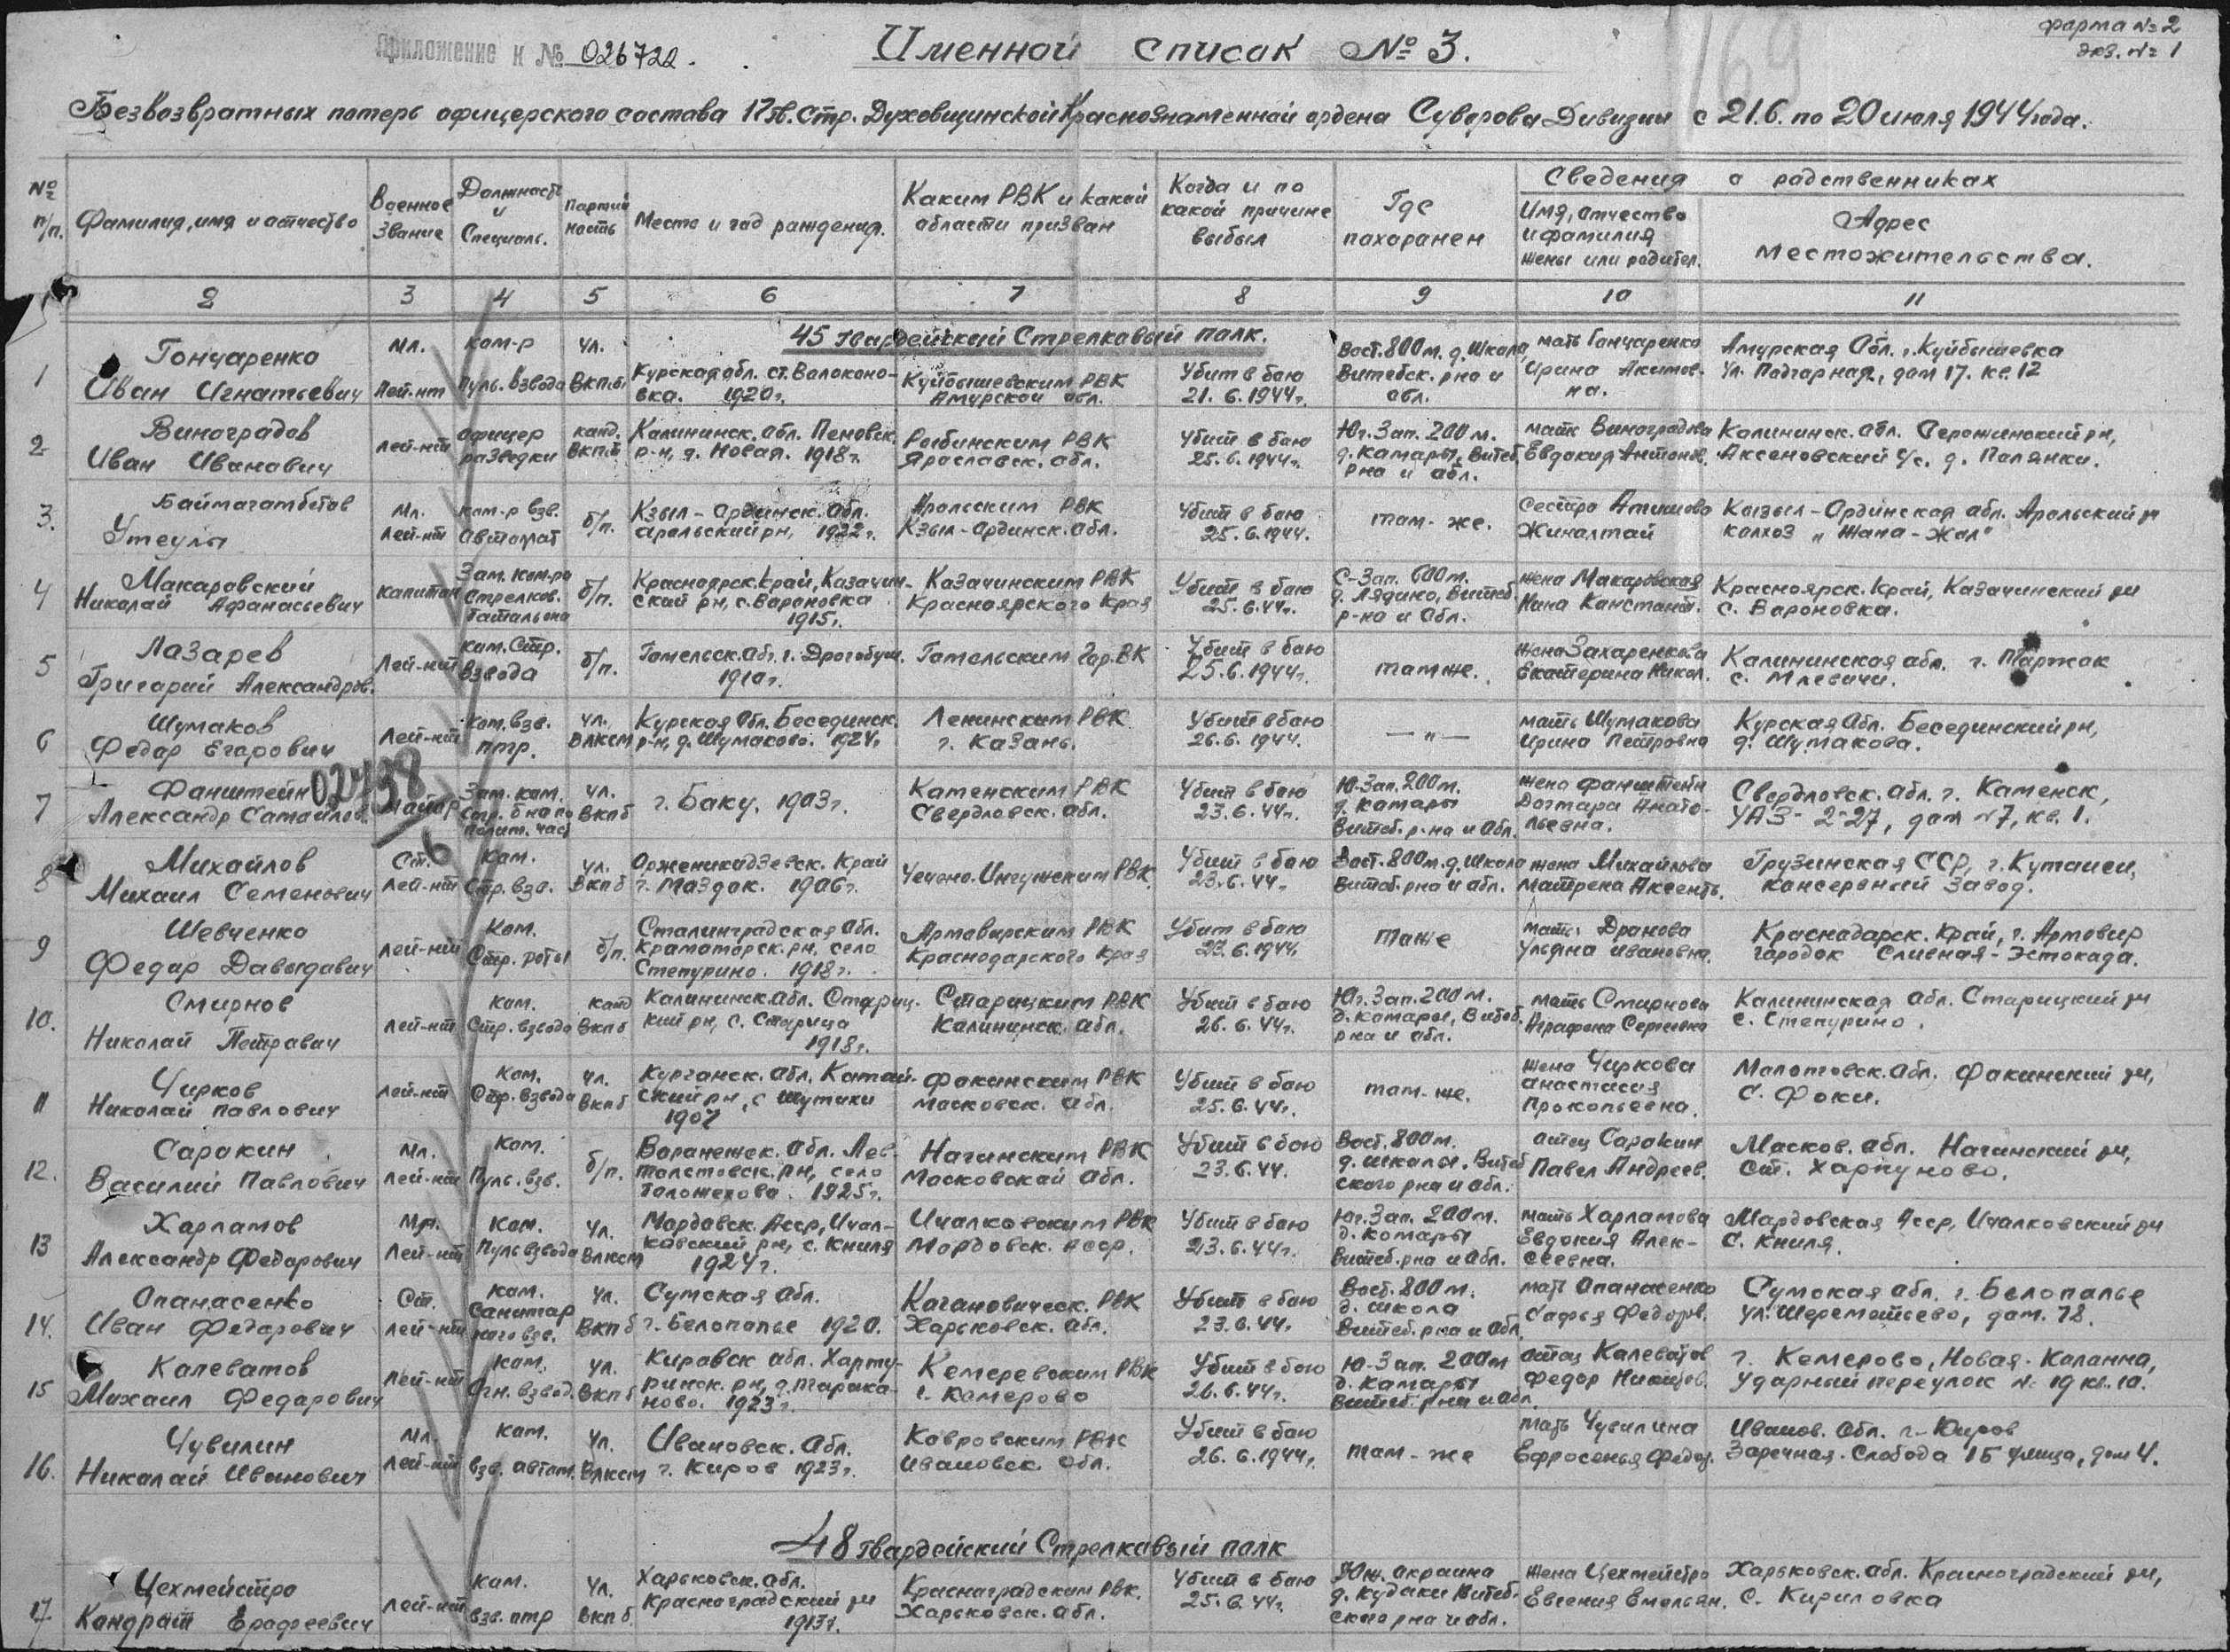 форма № 2
экз. № 1
Приложение к № 026722.
169
Именной список № 3.
Безвозвратных потерь офицерского состава 17 Гв. Стр. Духовщинской Краснознаменной ордена Суворова Дивизии с 21.6. по 20 июля 1944 года.
№ п/п. Фамилия, имя и отчество Военное Звание Должность и Специаль. Партийность Место и год рождения. Каким РВК и какой области призван Когда и по какой причине выбыл Где похоронен Сведения о родственниках
Имя, отчество и фамилия жены или родител. Адрес местожительства.
1 2 3 4 5 6 7 8 9 10 11
45 Гвардейский Стрелковый полк.
1 Гончаренко Иван Игнатьевич Мл. Лей-нт ком-р пуль. взвода чл. ВКП.б. Курская обл. ст. Волоконовка. 1920г. Куйбышевским РВК Амурской обл. Убит в бою 21.6.1944г. Вост. 800м. д. Школа, Витебск. рна и обл. мать Гончаренко Ирина Акимовна. Амурская Обл. г. Куйбышевка ул. Подгорная, дом 17. кв. 12
2 Виноградов Иван Иванович Лей-нт офицер разведки канд. ВКП.б Калининск. обл. Пеновск. р-н, д. Новая. 1918г. Рыбинским РВК Ярославск. обл. Убит в бою 25.6.1944г. Юг. Зап. 200м. д. Комары, Витеб. рна и обл. мать Виноградова Евдокия Антонов. Калининск. обл. Серожинский рн, Аксеновский с/с. д. Полянки.
3. Баймагамбетов Утеулы Мл. Лей-нт ком-р взв. автомат б/п. Кзыл-Ординск. обл. Аральский рн, 1922г. Аральским РВК Кзыл-Ординск. обл. Убит в бою 25.6.1944. там-же. сестра Атишова Жиналтай Кызыл-Ординская обл. Аральский рн колхоз "Жана-Жол"
4 Макаровский Николай Афанасьевич капитан Зам. ком-ра Стрелков. батальона б/п. Красноярск. край, Казачинский рн, с. Вороновка 1915г. Казачинским РВК Красноярского Края Убит в бою 25.6.44г. С-Зап. 600м. д. Лядино, Витеб. р-на и обл. жена Макаровская Нина Констант. Красноярск. край, Казачинский рн с. Вороновка.
5 Лазарев Григорий Александров. Лей-нт ком. Стр. взвода б/п. Гомельск. обл. г. Дрогобуш. 1910г. Гомельским Гор. ВК Убит в бою 25.6.1944г. там же. жена Захаренкова Екатерина Никол. Калининская обл. г. Торжок с. Млевичи.
6 Шумаков Федор Егорович Лей-нт ком. взв. птр. чл. ВЛКСМ Курская Обл. Бесединск. р-н, д. Шумаково. 1924г. Ленинским РВК г. Казань. Убит в бою 26.6.1944. — " — мать Шумакова Ирина Петровна Курская Обл. Бесединский рн, д. Шумакова.
02738
6
7 Фанштейн Александр Самойлов. Майор Зам. ком. стр. б на по полит. част чл. ВКПб г. Баку. 1903г. Каменским РВК Свердловск. обл. Убит в бою 23.6.44г. Ю-Зап. 200м. д. Комары Витеб. р-на и Обл. жена Фанштейн Догмара Анатольевна. Свердловск. обл. г. Каменск, УАЗ-2-27, дом №7, кв. 1.
8 Михайлов Михаил Семенович Ст. Лей-нт Ком. Стр. взв. чл. ВКПб Орженикидзевск. Край г. Маздок. 1906г. Чечено-Ингушским РВК. Убит в бою 23.6.44г. Вост. 800м. д. Школа Витеб. рна и обл. жена Михайлова Матрена Аксенть. Грузинская ССР, г. Кутаиси, консервный Завод.
9 Шевченко Федор Давыдович Лей-нт Ком. Стр. роты б/п. Сталинградская обл. Краматорск. рн, село Степурино. 1918г. Армавирским РВК Краснодарского Края Убит в бою 23.6.1944г. тоже мать Дранова Ульяна Ивановна. Краснодарск. Край, г. Армовир городок Сливная-Эстокада.
10. Смирнов Николай Петрович Лей-нт ком. Стр. взвода канд ВКПб Калининск. обл. Старицкий рн, с. Старица 1918г. Старицким РВК Калининск. обл. Убит в бою 26.6.44г. Юг. Зап. 200м. д. Комары, Витеб. рна и обл. мать Смирнова Аграфена Сергеевна Калининская обл. Старицкий рн с. Степурино.
11 Чирков Николай Павлович Лей-нт Ком. Стр. взвода чл. ВКПб Курганск. обл. Катайский рн, с Шутихи 1907 Фокинским РВК Московск. обл. Убит в бою 25.6.44г. там-же. жена Чиркова Анастасия Прокопьевна. Молотовск. обл. Фокинский рн, с. Фоки.
12. Сорокин Василий Павлович Мл. Лей-нт Ком. Пуль. взв. б/п. Воронежск. обл. Левтолстовск. рн, село Головехова. 1925г. Ногинским РВК Московской обл. Убит в бою 23.6.44. Вост. 800м. д. школы. Витебского рна и обл. отец Сорокин Павел Андреев. Москов. обл. Ногинский рн, ст. Харпуново.
13 Харламов Александр Федорович Мл. Лей-нт Ком. Пуль взвода чл. Влксм Мордовск. Асср, Ичалковский рн, с. Княля 1924г. Ичалковским РВК Мордовск. Асср. Убит в бою 23.6.44г. Юг. Зап. 200м. д. Комары Витеб. рна и Обл. мать Харламова Евдокия Алексеевна. Мордовская Асср, Ичалковский рн с. Княля.
14. Опанасенко Иван Федорович Ст. Лей-нт ком. Санитарного взв. чл. ВКПб Сумская обл. г. Белополье 1920. Кагановическ. РВК Харьковск. обл. Убит в бою 23.6.44г. Вост. 800м. д. школа Витеб. рна и обл. мать Опанасенко Софья Федоров. Сумская обл. г. Белополье ул. Шереметьево, дом. 78.
15 Калеватов Михаил Федорович Лей-нт ком. Огн. взвод. чл. ВКПб Кировск обл. Халтуринск. рн, д. Тараканово. 1923г. Кемеревским РВК г. Кемерово Убит в бою 26.6.44г. Ю-Зап. 200м д. Камары Витеб. рна и обл. отец Калеватов Федор Никитов. г. Кемерово, Новая-Каланна, Ударный переулок № 19 кв. 10.
16. Чувилин Николай Иванович Мл. Лей-нт ком. взв. автом. чл. Влксм Ивановск. обл. г. Киров 1923г. Ковровским РВК Ивановск. обл. Убит в бою 26.6.1944г. там-же мать Чувилина Ефросенья Федор. Иванов. обл. г-Киров Заречная-Слобода 15 улица, дом 4.
48 Гвардейский Стрелковый полк
17 Цехмейстро Кандрат Ерофеевич Лей-нт ком. взв. птр чл. ВКПб. Харьковск. обл. Красноградский рн 1913г. Красноградским РВК. Харьковск. обл. Убит в бою 25.6.44г. Юж. окраина д. Кудаки Витебского рна и обл. жена Цехмейстро Евгения Емельян. Харьковск. обл. Красноградский рн, с. Кириловка